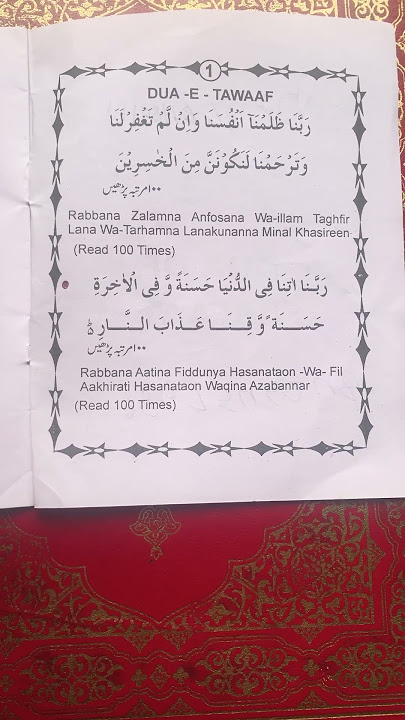 1
DUA -E - TAWAAF
رَبَّنَا ظَلَمْنَآ اَنْفُسَنَا وَاِنْ لَّمْ تَغْفِرْلَنَا
وَتَرْحَمْنَا لَنَكُوْنَنَّ مِنَ الْخٰسِرِيْنَ
۱۰۰ مرتبہ پڑھیں
Rabbana Zalamna Anfosana Wa-illam Taghfir
Lana Wa-Tarhamna Lanakunanna Minal Khasireen
(Read 100 Times)
رَبَّنَا اٰتِنَا فِى الدُّنْيَا حَسَنَةً وَّ فِى الْاٰخِرَةِ
حَسَنَةً وَّ قِنَا عَذَابَ النَّارِ
۱۰۰ مرتبہ پڑھیں
Rabbana Aatina Fiddunya Hasanataon -Wa- Fil
Aakhirati Hasanataon Waqina Azabannar
(Read 100 Times)